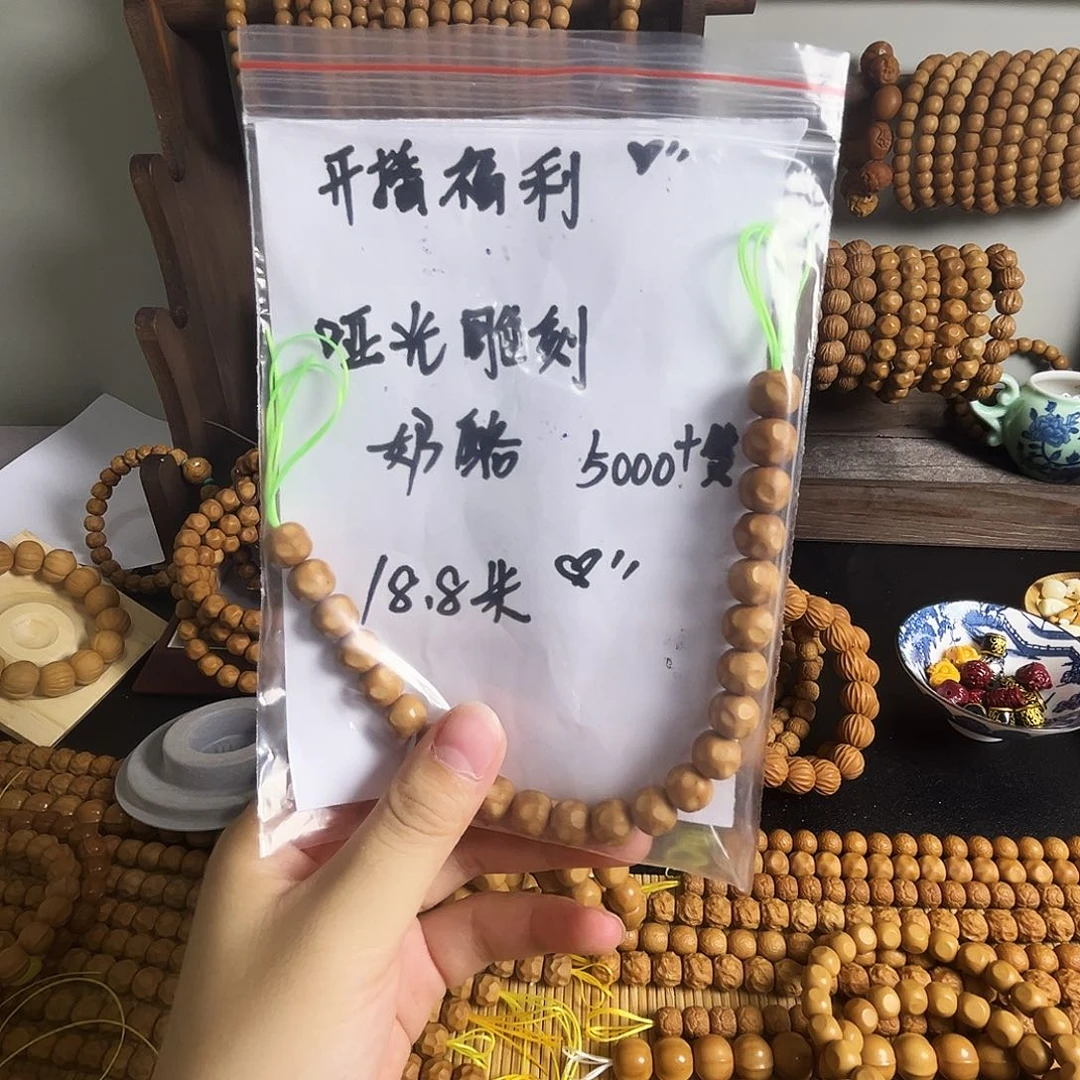 开播福利
哑光雕刻
奶酪 5000+货
18.8米